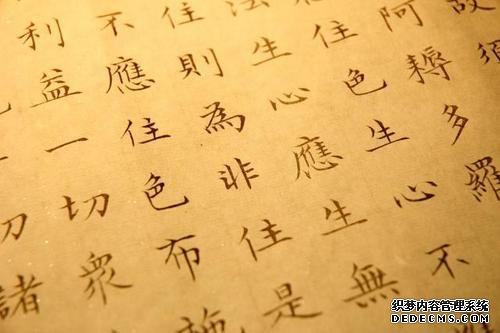 故須
阿耨多羅
住色生心不
法生心應生無
住則為非住是
不應住色布施
利益一切眾
切諸
织梦内容管理系统
DEDECMS.COM